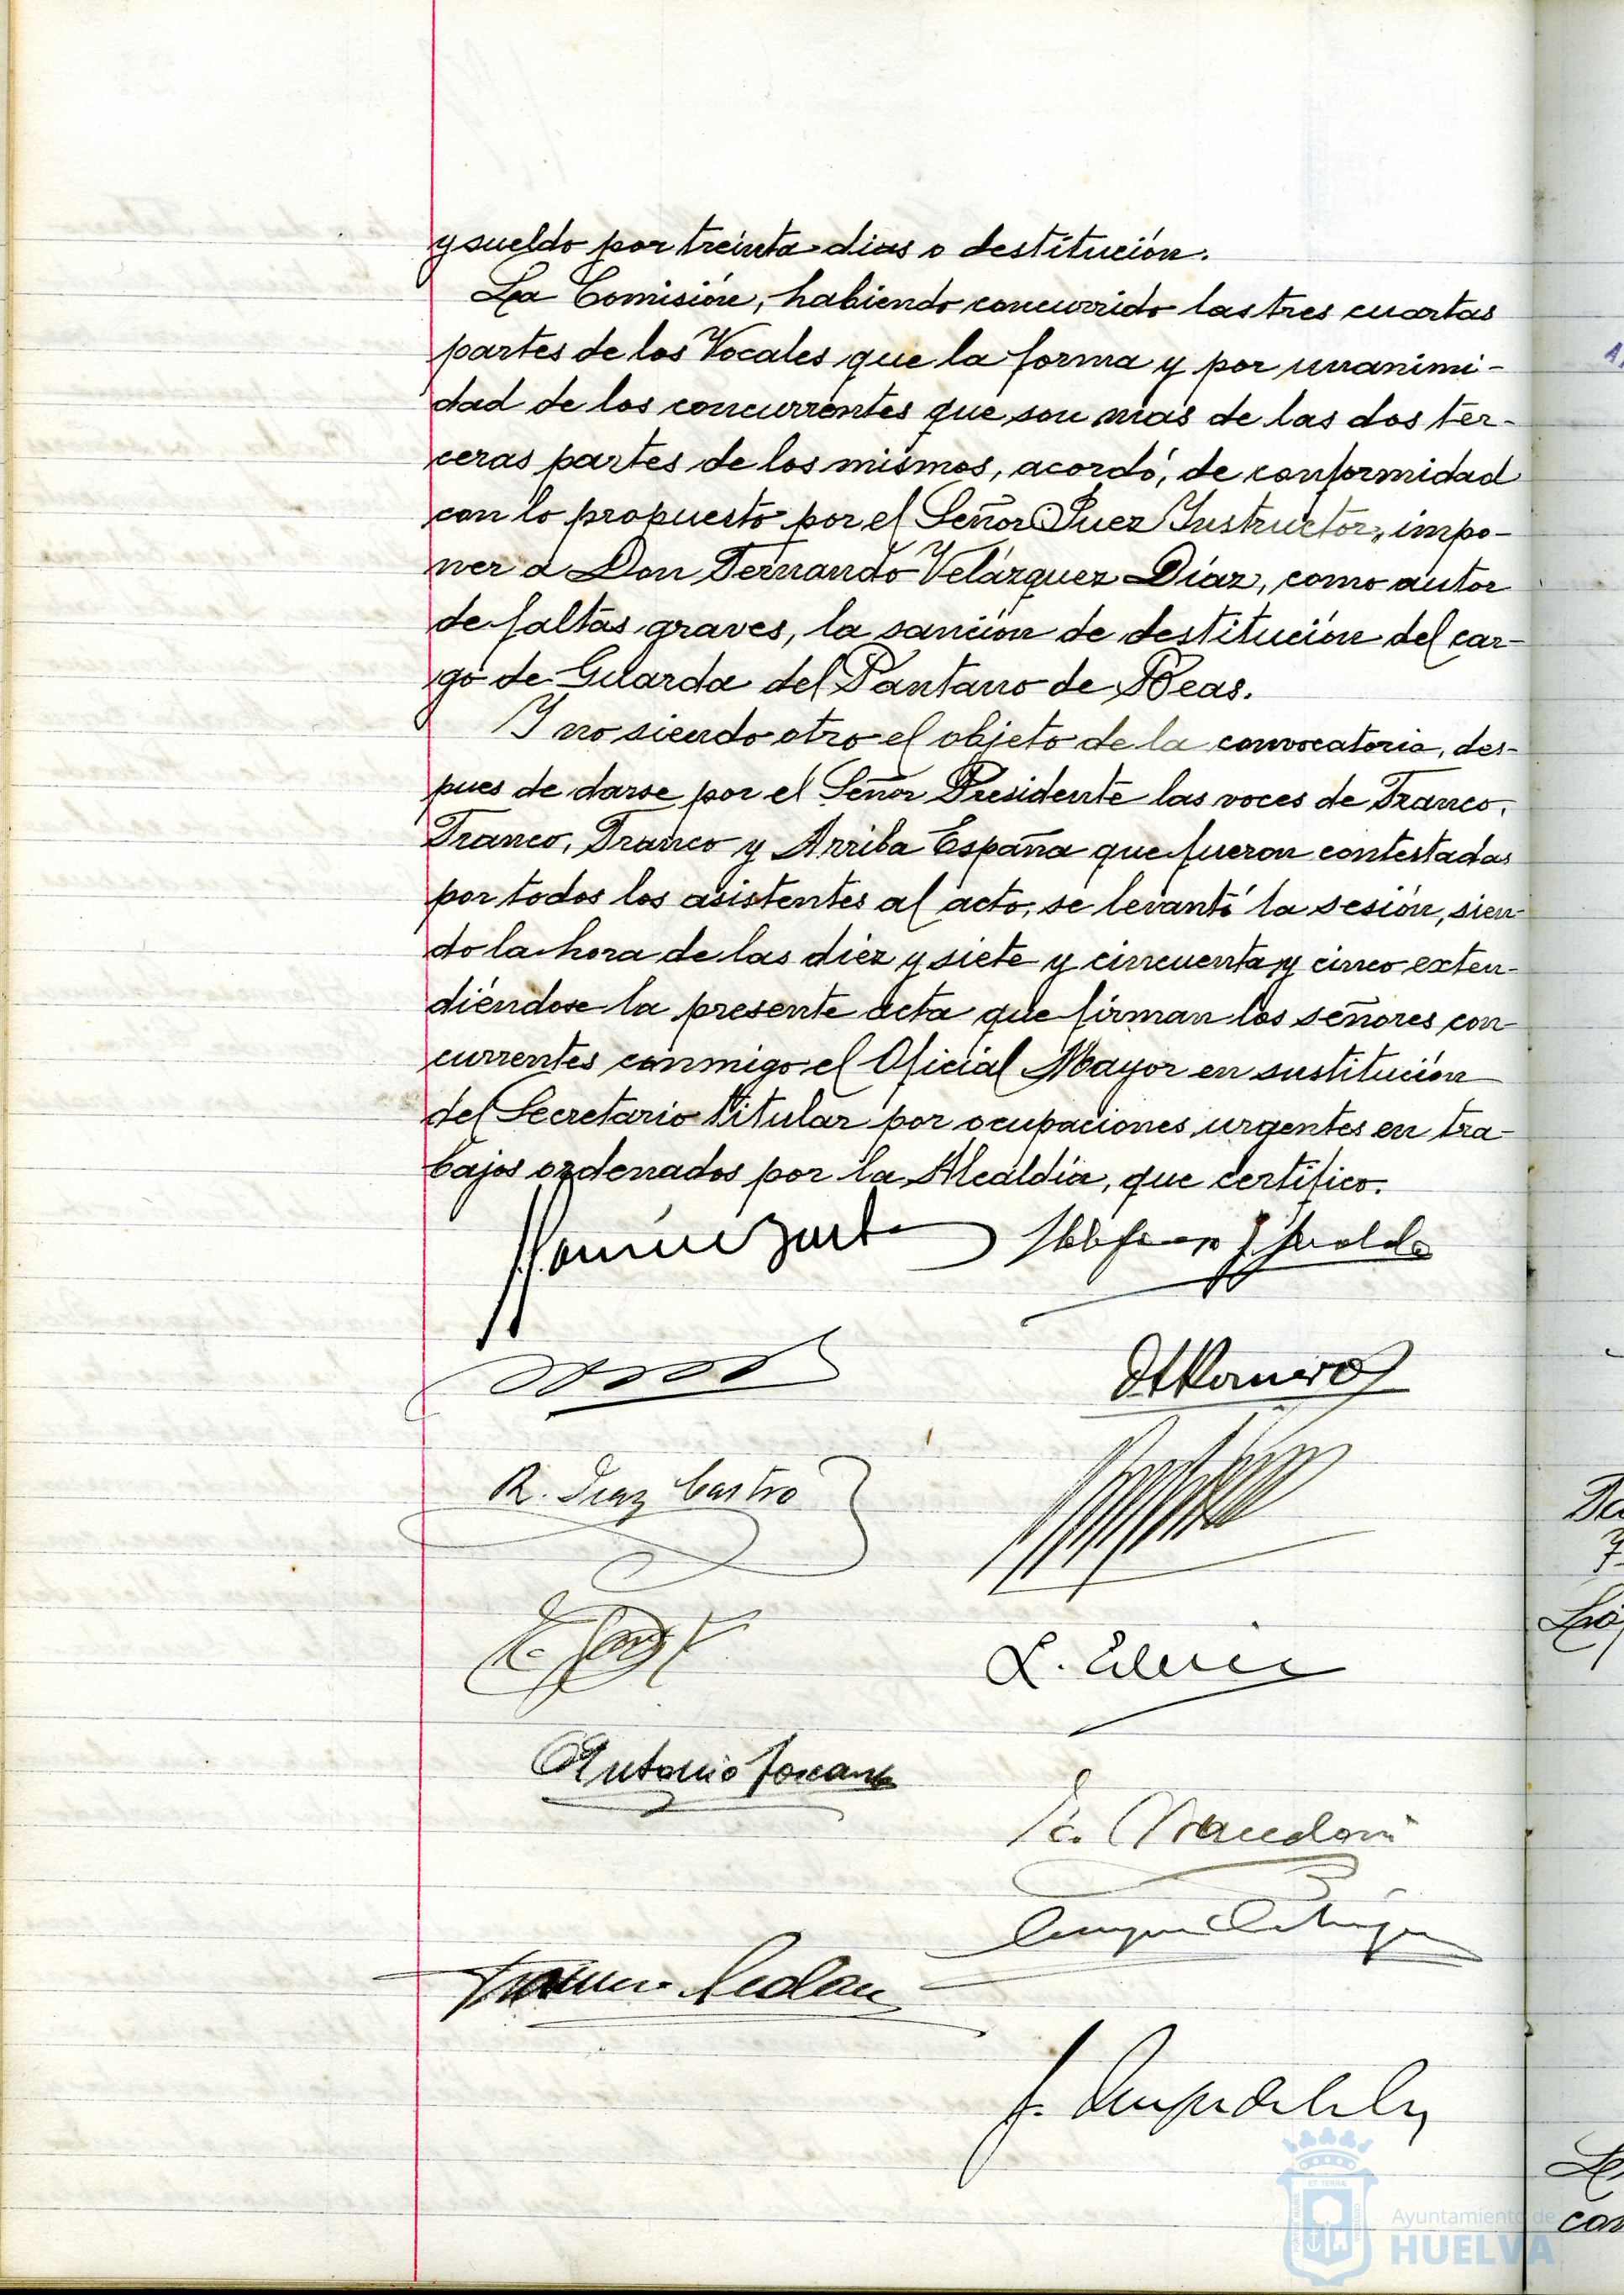 y sueldo por treinta dias o destitución.
La Comisión, habiendo concurrido las tres cuartas
partes de los Vocales que la forma y por unanimi-
dad de los concurrentes que son más de las dos ter-
ceras partes de los mismos, acordó, de conformidad
con lo propuesto por el Señor Juez Instructor, impo-
ner a Don Fernando Velázquez Díaz, como autor
de faltas graves, la sanción de destitución del car-
go de Guarda del Pantano de Beas.
Y no siendo otro el objeto de la convocatoria, des-
pues de darse por el Señor Presidente las voces de Franco,
Franco, Franco y Arriba España que fueron contestadas
por todos los asistentes al acto, se levantó la sesión, sien-
do la hora de las diez y siete y cincuenta y cinco exten-
diéndose la presente acta que firman los señores con-
currentes conmigo el Oficial Mayor en sustitución
del Secretario titular por ocupaciones urgentes en tra-
bajos ordenados por la Alcaldía, que certifico.
R. Diaz Castro
Antonio
Ayuntamiento de
HUELVA